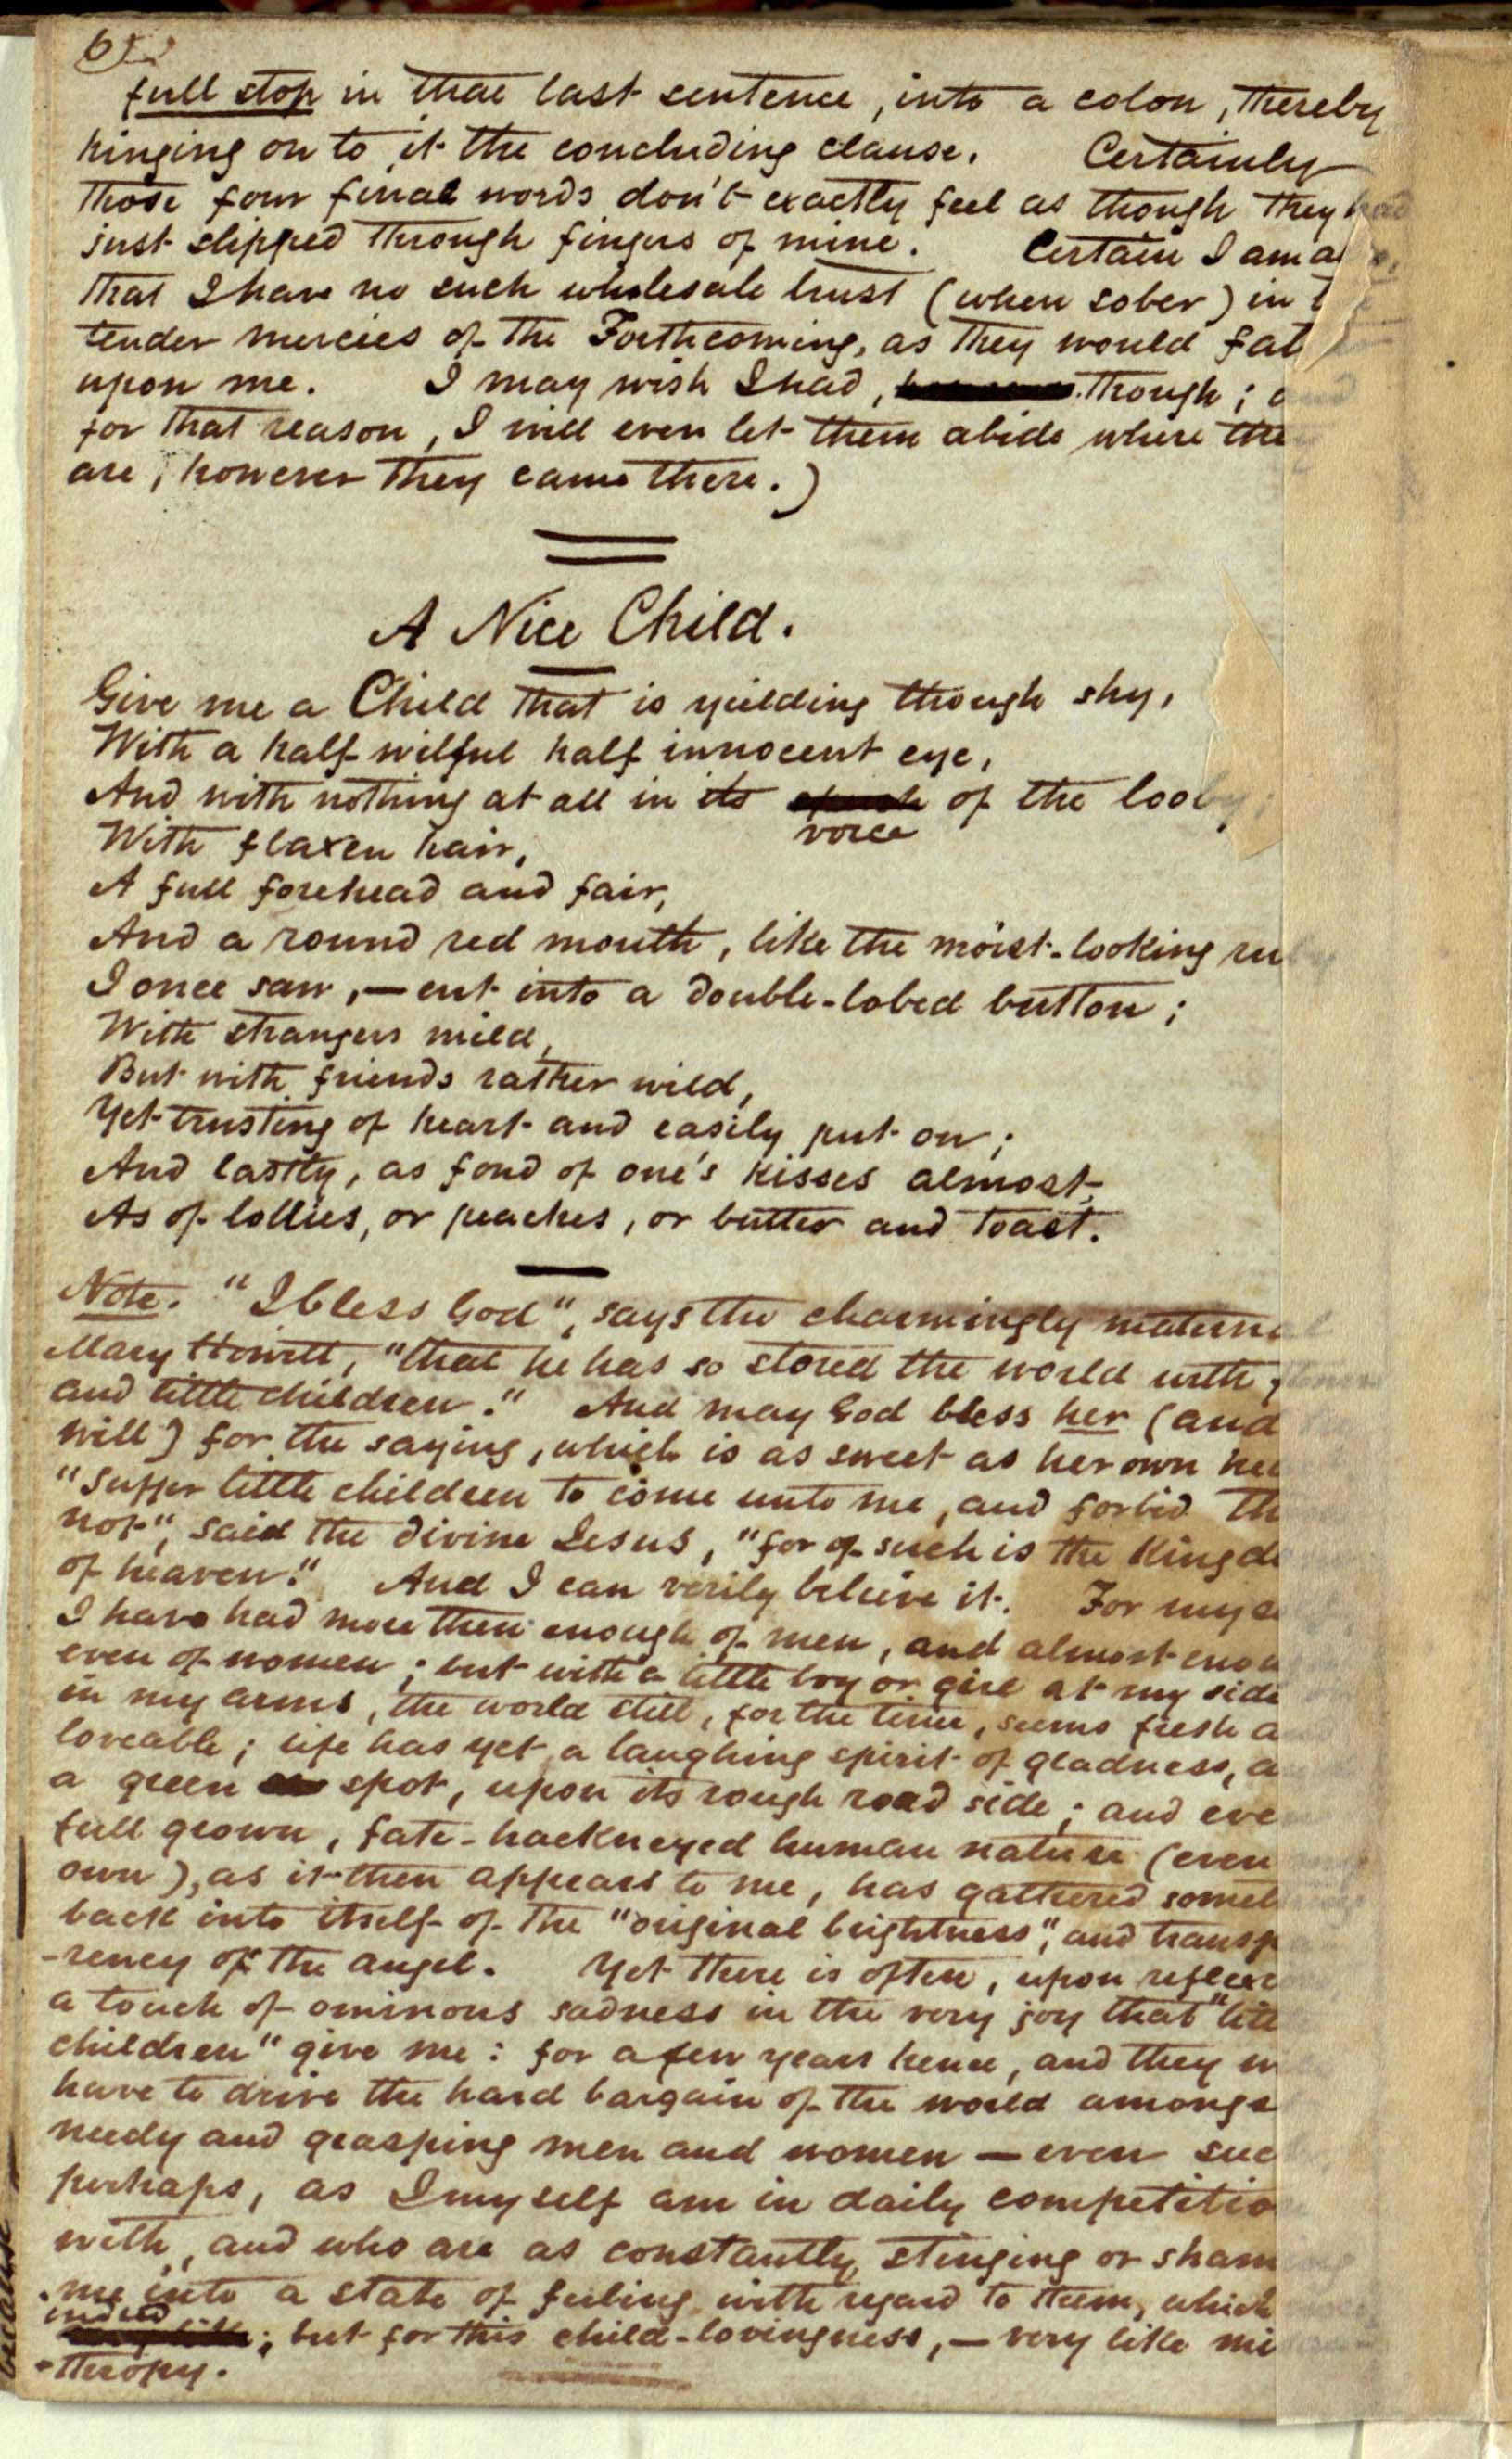 full stop in that last sentence, into a colon, thereby
hinging on to it the concluding clause. Certainly
those four final words don't exactly feel as though they had
just slipped through fingers of mine. Certain I am
that I have no such wholesale trust (when sober) in
tender mercies of the Forthcoming, as they would fat
upon me. I may wish I had, though; and
for that reason, I will even let them abide where the
are, however they came there.)
A Nice Child.
Give me a Child that is yielding though shy,
With a half wilful half innocent eye,
And with nothing at all in its voice of the looby;
With flaxen hair,
A full forehead and fair,
And a round red mouth, like the moist-looking ruby
I once saw,—cut into a double-lobed button;
With strangers mild,
But with friends rather wild,
Yet trusting of heart and easily put on;
And lastly, as fond of one's kisses almost
As of lollies, or peaches, or butter and toast.
Note. "I bless God", says the charmingly materna
Mary Howitt, "that he has so stored the world with
and little children." And may God bless her (and
will) for the saying, which is as sweet as her own
"Suffer little children to come unto me, and forbid th
not", said the divine Jesus, "for of such is the Kingdo
of heaven." And I can verily believe it. For myse
I have had more then enough of men, and almost enou
even of women; but with a little boy or girl at my side
in my arms, the world still, for the time, seems fresh a
loveable; life has yet a laughing spirit of gladness, a
a green spot, upon its rough road side; and eve
full grown, fate-hackneyed human nature (even
own), as it then appears to me, has gathered somet
back into itself of the "original brightness", and transp
-rency of the angel. Yet there is often, upon reflec
a touch of ominous sadness in the very joy that "litt
children" give me: for a few years hence, and they w
have to drive the hard bargain of the world amongs
needy and grasping men and women — even suc
perhaps, as I myself am in daily competitio
with, and who are as constantly stinging or sham
me into a state of feeling with regard to them, which
indeed; but for this child-lovingness, — very like mi
-thropy.